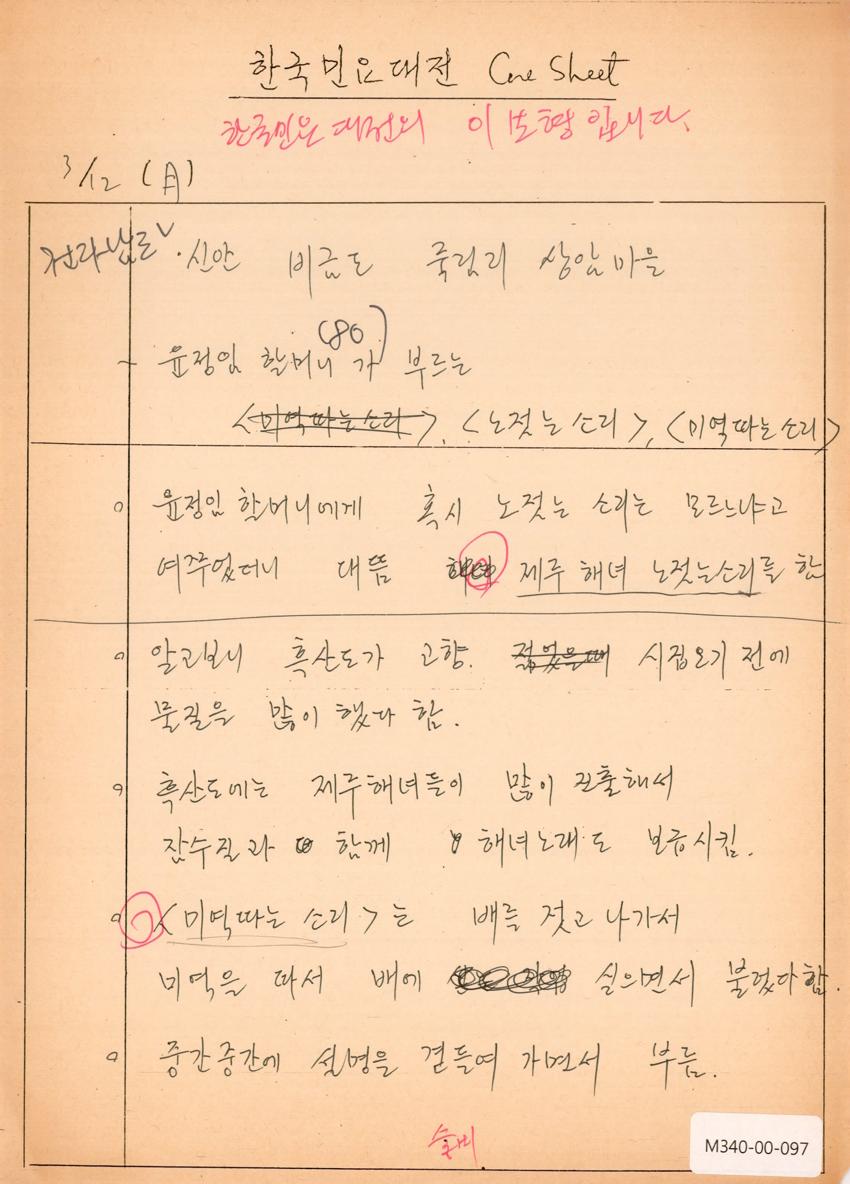 한국민요대전 Cue Sheet
한국민요대전의 이보형입니다.
3/12 (月)
전라남도 · 신안 비금도 죽림리 상암마을
- 윤정임 할머니(80)가 부르는
<미역따는소리>, <노젓는소리>, <미역따는소리>
○ 윤정임 할머니에게 혹시 노젓는 소리는 모르느냐고
여쭈었더니 대뜸 제주 해녀 노젓는소리를 함
○ 알고보니 흑산도가 고향. 젊었을때 시집오기 전에
물질을 많이 했다 함.
○ 흑산도에는 제주해녀들이 많이 진출해서
잠수질과 함께 해녀노래도 보급시킴.
○ <미역따는 소리>는 배를 젓고 나가서
미역을 따서 배에 실으면서 불렀다함.
○ 중간중간에 설명을 곁들여 가면서 부름.
M340-00-097